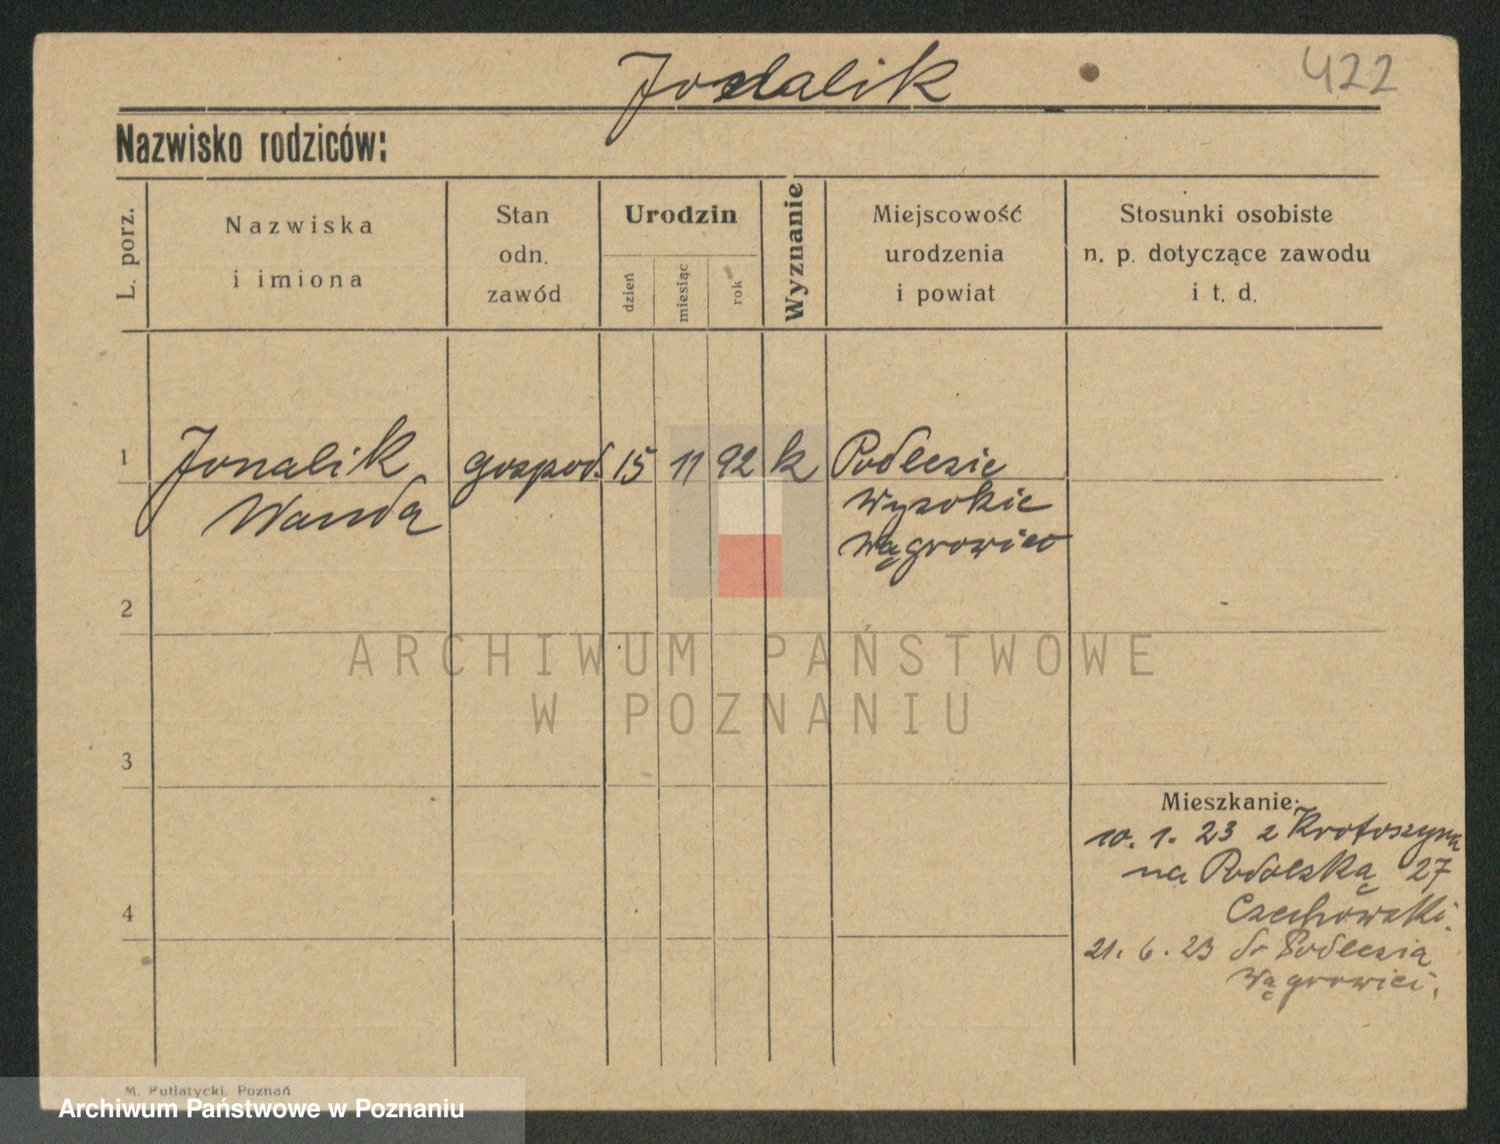 Jonalik
422
Nazwisko rodziców:
L. porz.
Nazwiska
i imiona
Stan
odn.
zawód
Urodzin
dzień
miesiąc
rok
Wyznanie
Miejscowość
urodzenia
i powiat
Stosunki osobiste
n. p. dotyczące zawodu
i t. d.
1
Jonalik
Wanda
gospod.
15
11
92
k
Podlesie
Wysokie
Wągrowiec
2
ARCHIWUM PAŃSTWOWE
W POZNANIU
3
Mieszkanie:
10. 1. 23 z Krotoszyna
na Podolską 27
Czechowski.
4
21. 6. 23 do Podlesia
Wągrowiec.
M. Putiatycki, Poznań
Archiwum Państwowe w Poznaniu